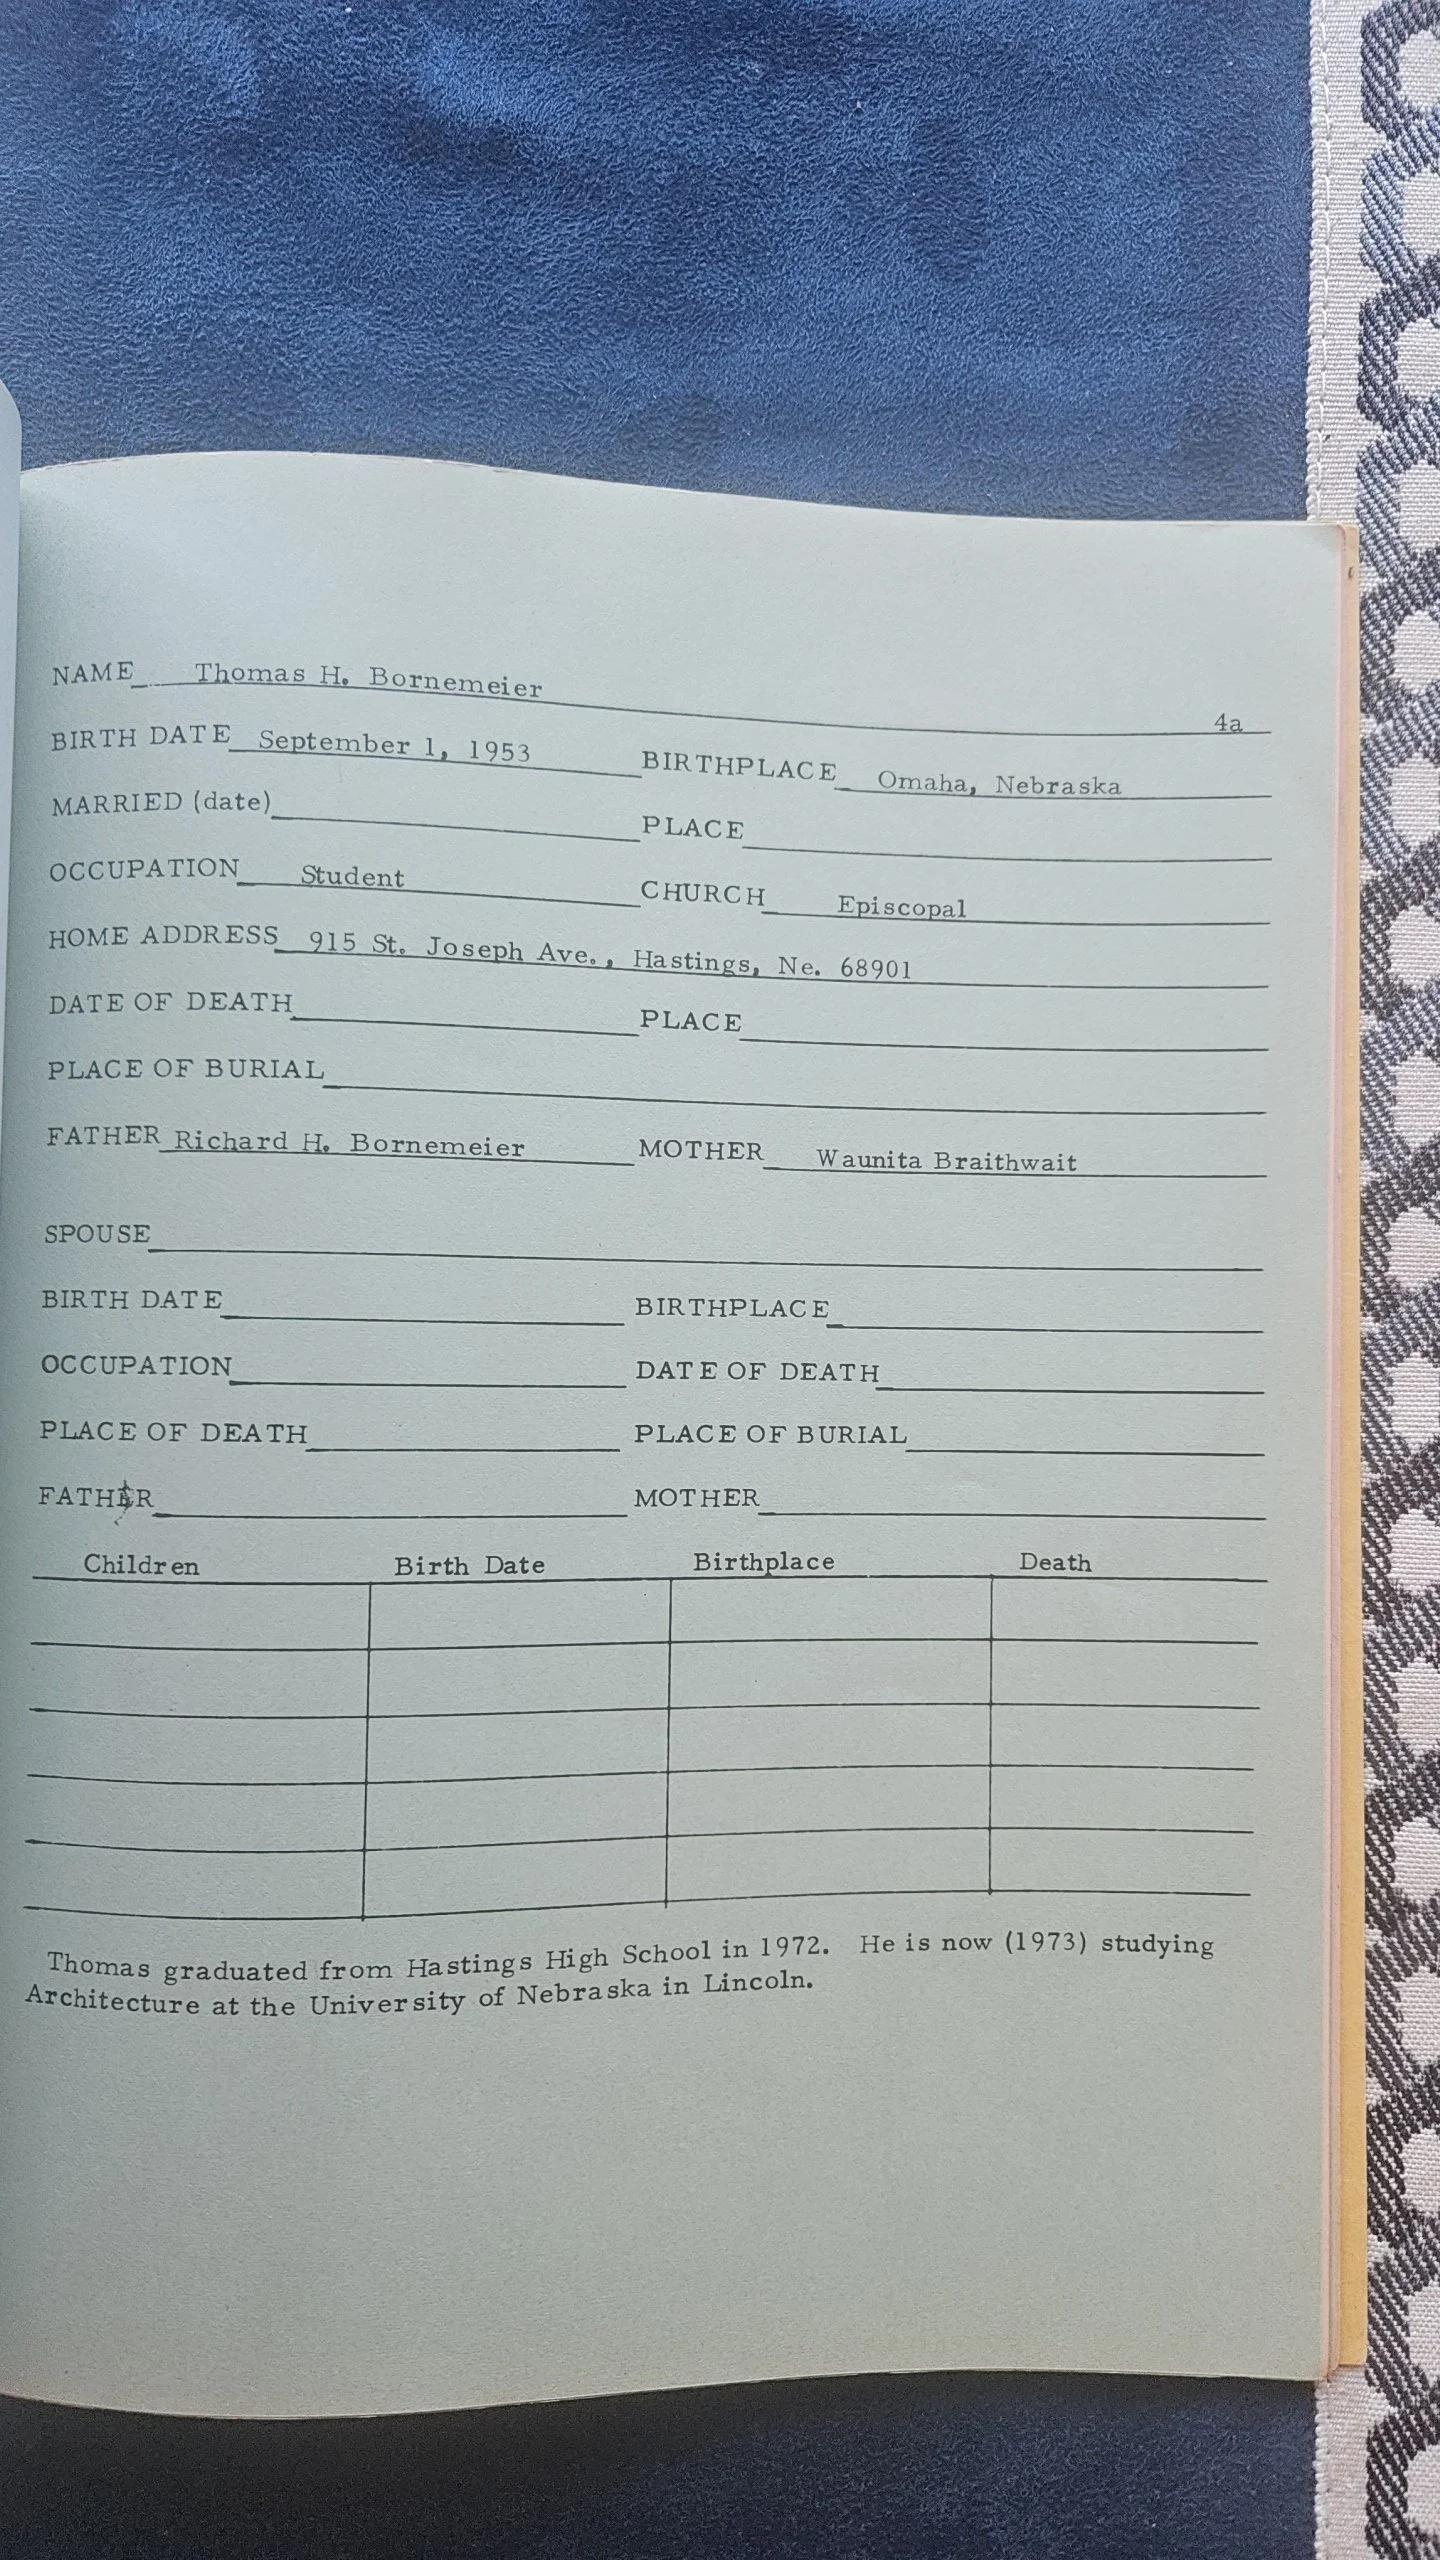 NAME Thomas H. Bornemeier 4a
BIRTH DATE September 1, 1953 BIRTHPLACE Omaha, Nebraska
MARRIED (date) PLACE
OCCUPATION Student CHURCH Episcopal
HOME ADDRESS 915 St. Joseph Ave., Hastings, Ne. 68901
DATE OF DEATH PLACE
PLACE OF BURIAL
FATHER Richard H. Bornemeier MOTHER Waunita Braithwait
SPOUSE
BIRTH DATE BIRTHPLACE
OCCUPATION DATE OF DEATH
PLACE OF DEATH PLACE OF BURIAL
FATHER MOTHER
Children Birth Date Birthplace Death
Thomas graduated from Hastings High School in 1972. He is now (1973) studying
Architecture at the University of Nebraska in Lincoln.